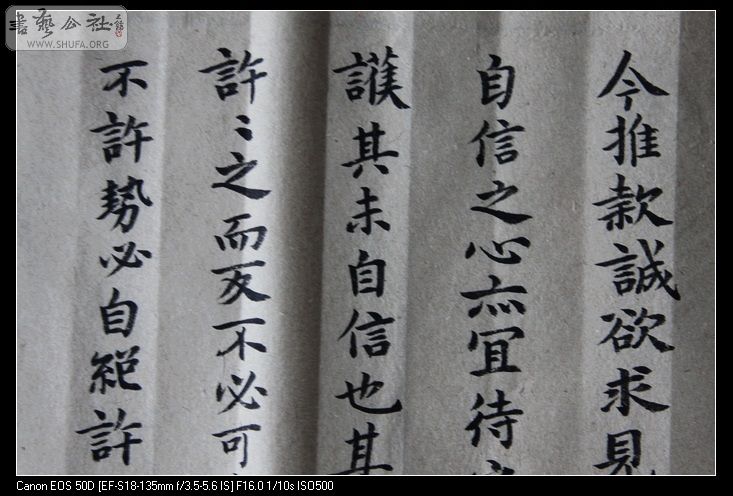 書藝公社
WWW.SHUFA.ORG
今推款誠欲求見
自信之心亦冝待
護其未自信也其
許〻之而反不必可
不許勢必自絕許
Canon EOS 50D [EF-S18-135mm f/3.5-5.6 IS] F16.0 1/10s ISO500